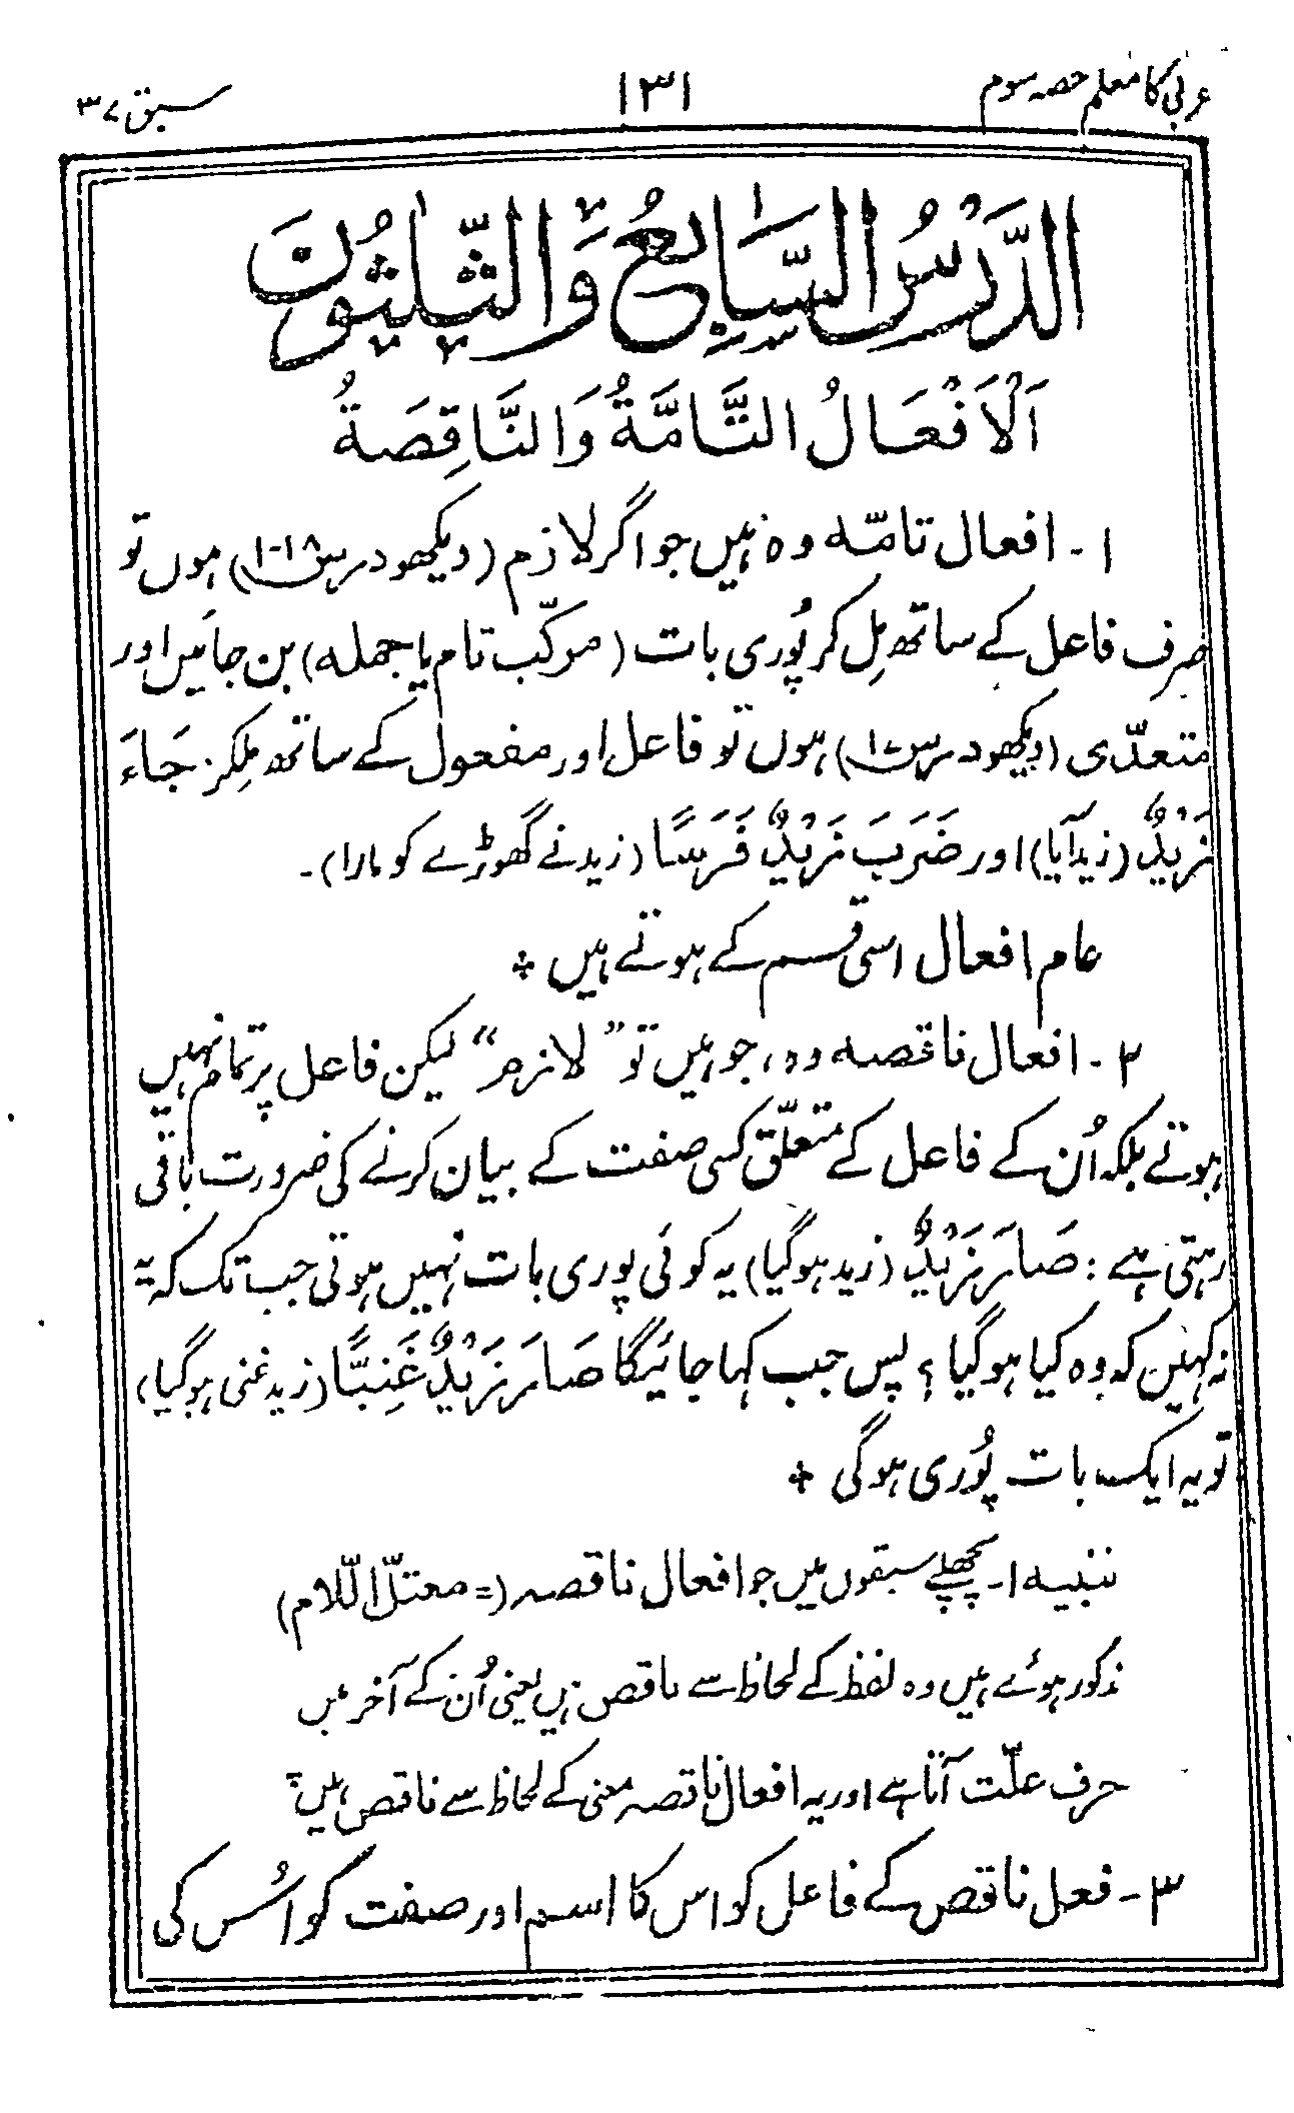 عربی کا معلم حصہ سوم
۱۳۱
سبق ۳۷
الدَّرْسُ السَّابِعُ وَالثَّلٰثُونَ
اَلْاَفْعَالُ التَّامَّةُ وَالنَّاقِصَةُ
۱۔ افعال تامّہ وہ ہیں جو اگر لازم (دیکھو درس ۱۸-۱) ہوں تو
صرف فاعل کے ساتھ مِل کر پُوری بات (مرکّب تام یا جملہ) بن جائیں اور
متعدّی (دیکھو درس ۱۷) ہوں تو فاعل اور مفعول کے ساتھ ملکر: جَاءَ
زَيْدٌ (زید آیا) اور ضَرَبَ زَيْدٌ فَرَسًا (زید نے گھوڑے کو مارا)۔
عام افعال اسی قسم کے ہوتے ہیں +
۲۔ افعال ناقصہ وہ، جو ہیں تو "لازم" لیکن فاعل پر تمام نہیں
ہوتے بلکہ اُن کے فاعل کے متعلّق کسی صفت کے بیان کرنے کی ضرورت باقی
رہتی ہے: صَارَ زَيْدٌ (زید ہو گیا) یہ کوئی پوری بات نہیں ہوتی جب تک کہ یہ
نہ کہیں کہ وہ کیا ہوگیا؟ پس جب کہا جائیگا صَارَ زَيْدٌ غَنِيًّا (زید غنی ہو گیا)
تو یہ ایک بات پُوری ہوگی +
تنبیہ ۱۔ پچھلے سبقوں میں جو افعال ناقصہ (= معتلّ اللّام)
مذکور ہوئے ہیں وہ لفظ کے لحاظ سے ناقص ہیں یعنی اُن کے آخر میں
حرف علّت آتا ہے اور یہ افعال ناقصہ معنی کے لحاظ سے ناقص ہیں
۳۔ فعل ناقص کے فاعل کو اس کا اسم اور صفت کو اُس کی